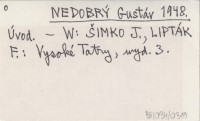 NEDOBRÝ Gustáv 1948.
Úvod. – W: ŠIMKO J., LIPTÁK
F.: Vysoké Tatry, wyd. 3.